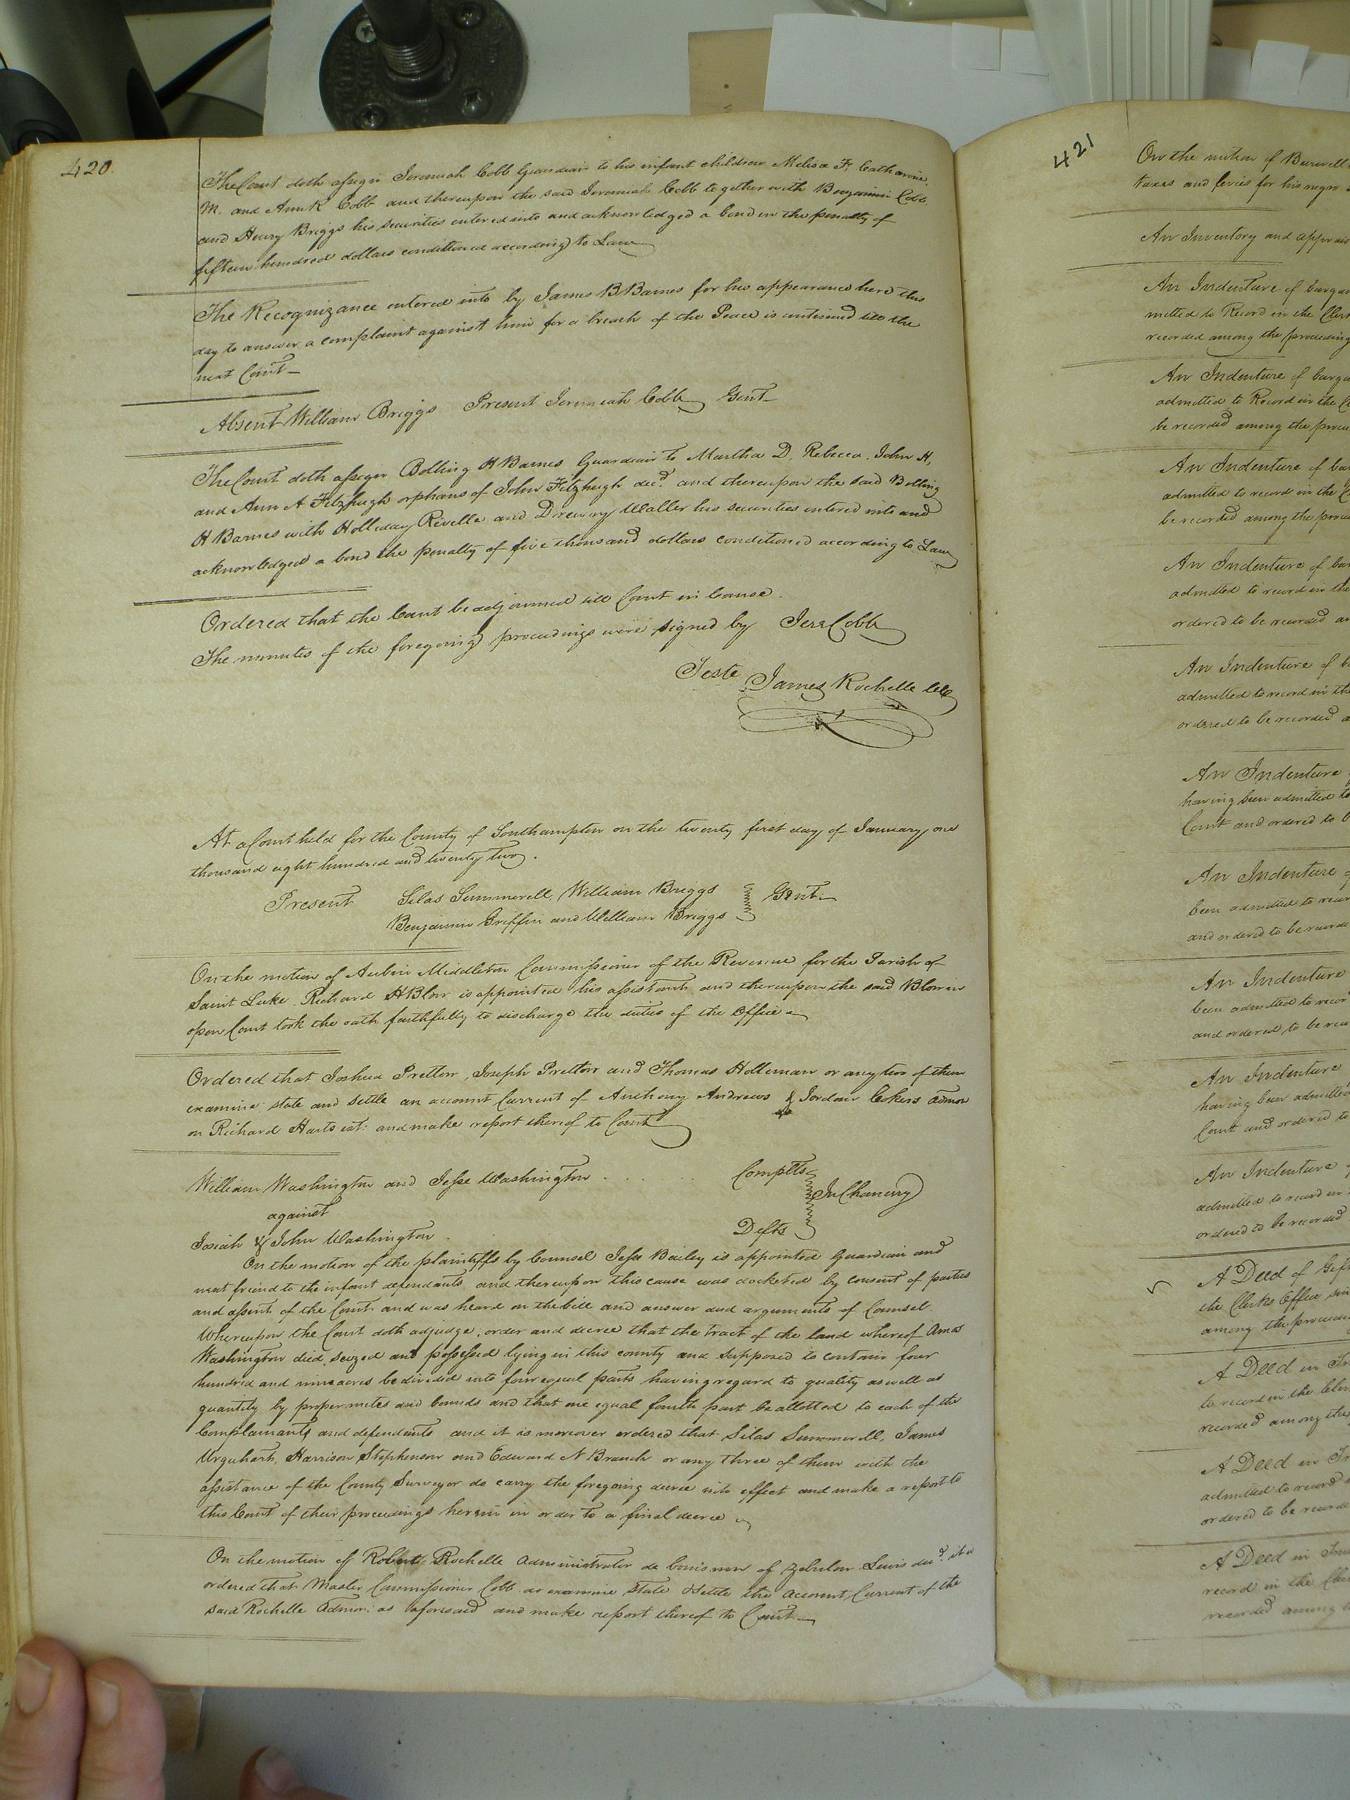 420.
The Court doth assign Jeremiah Cobb Guardian to his infant children Melissa F, Catharine
M. and Ann R Cobb and thereupon the said Jeremiah Cobb together with Benjamin Cobb
and Henry Briggs his securities entered into and acknowledged a bond in the penalty of
fifteen hundred dollars conditioned according to Law
The Recognizance entered into by James B Barnes for his appearance here this
day to answer a complaint against him for a breach of the Peace is continued till the
next Court
Absent William Briggs Present Jeremiah Cobb Gent
The Court doth assign Bolling H Barnes Guardian to Martha D, Rebecca, John H,
and Ann A Fitzhugh orphans of John Fitzhugh decd. and thereupon the said Bolling
H Barnes with Holliday Revelle and Drewry Waller his securities entered into and
acknowledged a bond the penalty of five thousand dollars conditioned according to Law
Ordered that the Court be adjourned till Court in Course
The minutes of the foregoing proceedings were signed by Jere Cobb
Teste James Rochelle Clk
At a Court held for the County of Southampton on the twenty first day of January one
thousand eight hundred and twenty two.
Present Silas Summerell, William Briggs
Benjamin Griffin and William Briggs Gent
On the motion of Aubin Middleton Commissioner of the Revenue for the Parish of
Saint Luke Richard H Blow is appointed his assistant and thereupon the said Blow in
open Court took the oath faithfully to discharge the duties of the office
Ordered that Joshua Pretlow, Joseph Pretlow and Thomas Holleman or any two of them
examine state and settle an account Current of Anthony Andrews & Jordan admor
on Richard Harts est: and make report thereof to Court
William Washington and Jesse Washington Complts
against In Chancery
Josiah & John Washington Defts
On the motion of the plaintiffs by Counsel Jesse Bailey is appointed Guardian and
next friend to the infant defendants and thereupon this cause was docketed by consent of parties
and assent of the Court and was heard on the bill and answer and arguments of Counsel
Whereupon the Court doth adjudge, order and decree that the tract of the land whereof Amos
Washington died seized and possessed lying in this county and supposed to contain four
hundred and nine acres be divided into four equal parts having regard to quality as well as
quantity by proper metes and bounds and that one equal fourth part be allotted to each of the
Complainants and defendants and it is moreover ordered that Silas Summerell, James
Urquhart, Harrison Stephenson and Edward N Branch or any three of them with the
assistance of the County Surveyor do carry the foregoing decree into effect and make a report to
this Court of their proceedings herein in order to a final decree
On the motion of Robert Rochelle Administrator de bonis non of Zebulon Lewis decd. it is
ordered that Master Commissioner Cobb do examine State & settle the account Current of the
said Rochelle Admor: as aforesaid and make report thereof to Court
421
On the motion of Burwell
taxes and levies for his negro
An Inventory and apprais
An Indenture of bargai
mitted to Record in the Cler
recorded among the proceeding
An Indenture of barga
admitted to Record in the Cl
be recorded among the proce
An Indenture of bar
admitted to record in the C
be recorded among the proce
An Indenture of bar
admitted to record in the
ordered to be recorded an
An Indenture of b
admitted to record in the
ordered to be recorded a
An Indenture
having been admitted to
Court and ordered to b
An Indenture of
been admitted to recor
and ordered to be recorde
An Indenture
been admitted to recor
and ordered to be reco
An Indenture
having been admitted
Court and ordered to
An Indenture
admitted to record in
ordered to be recorded
A Deed of Gift
the Clerks Office sin
among the proceedi
A Deed in Tru
to record in the Cler
recorded among the
A Deed in Tr
admitted to record
ordered to be recorde
A Deed in Trus
record in the Cler
recorded among t